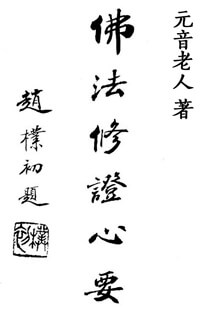 元音老人著
佛法修證心要
趙樸初題
樸初